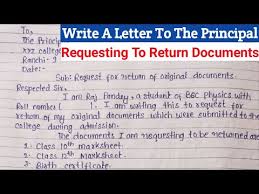 Write A Letter To The Principal
Requesting To Return Documents
To,
The Princip
xyz college
Ranchi-
Date:-
Sub: Request for return of original documents.
Respected Sir,
I am Raj Pandey, a student of BSC Physics with
Roll number [ ]. I am writing this to request for
return of my original documents which were submitted to the
college during admission.
The documents I am requesting to be returned are
1. Class 10th marksheet.
2. Class 12th marksheet.
3. Birth certificate.